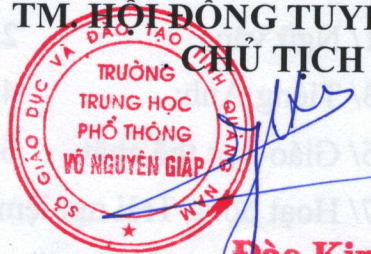 TM. HỘI ĐỒNG TUYỂ
CHỦ TỊCH
SỞ GIÁO DỤC VÀ ĐÀO TẠO TỈNH QUẢNG NAM
TRƯỜNG
TRUNG HỌC
PHỔ THÔNG
VÕ NGUYÊN GIÁP
Đào Kim